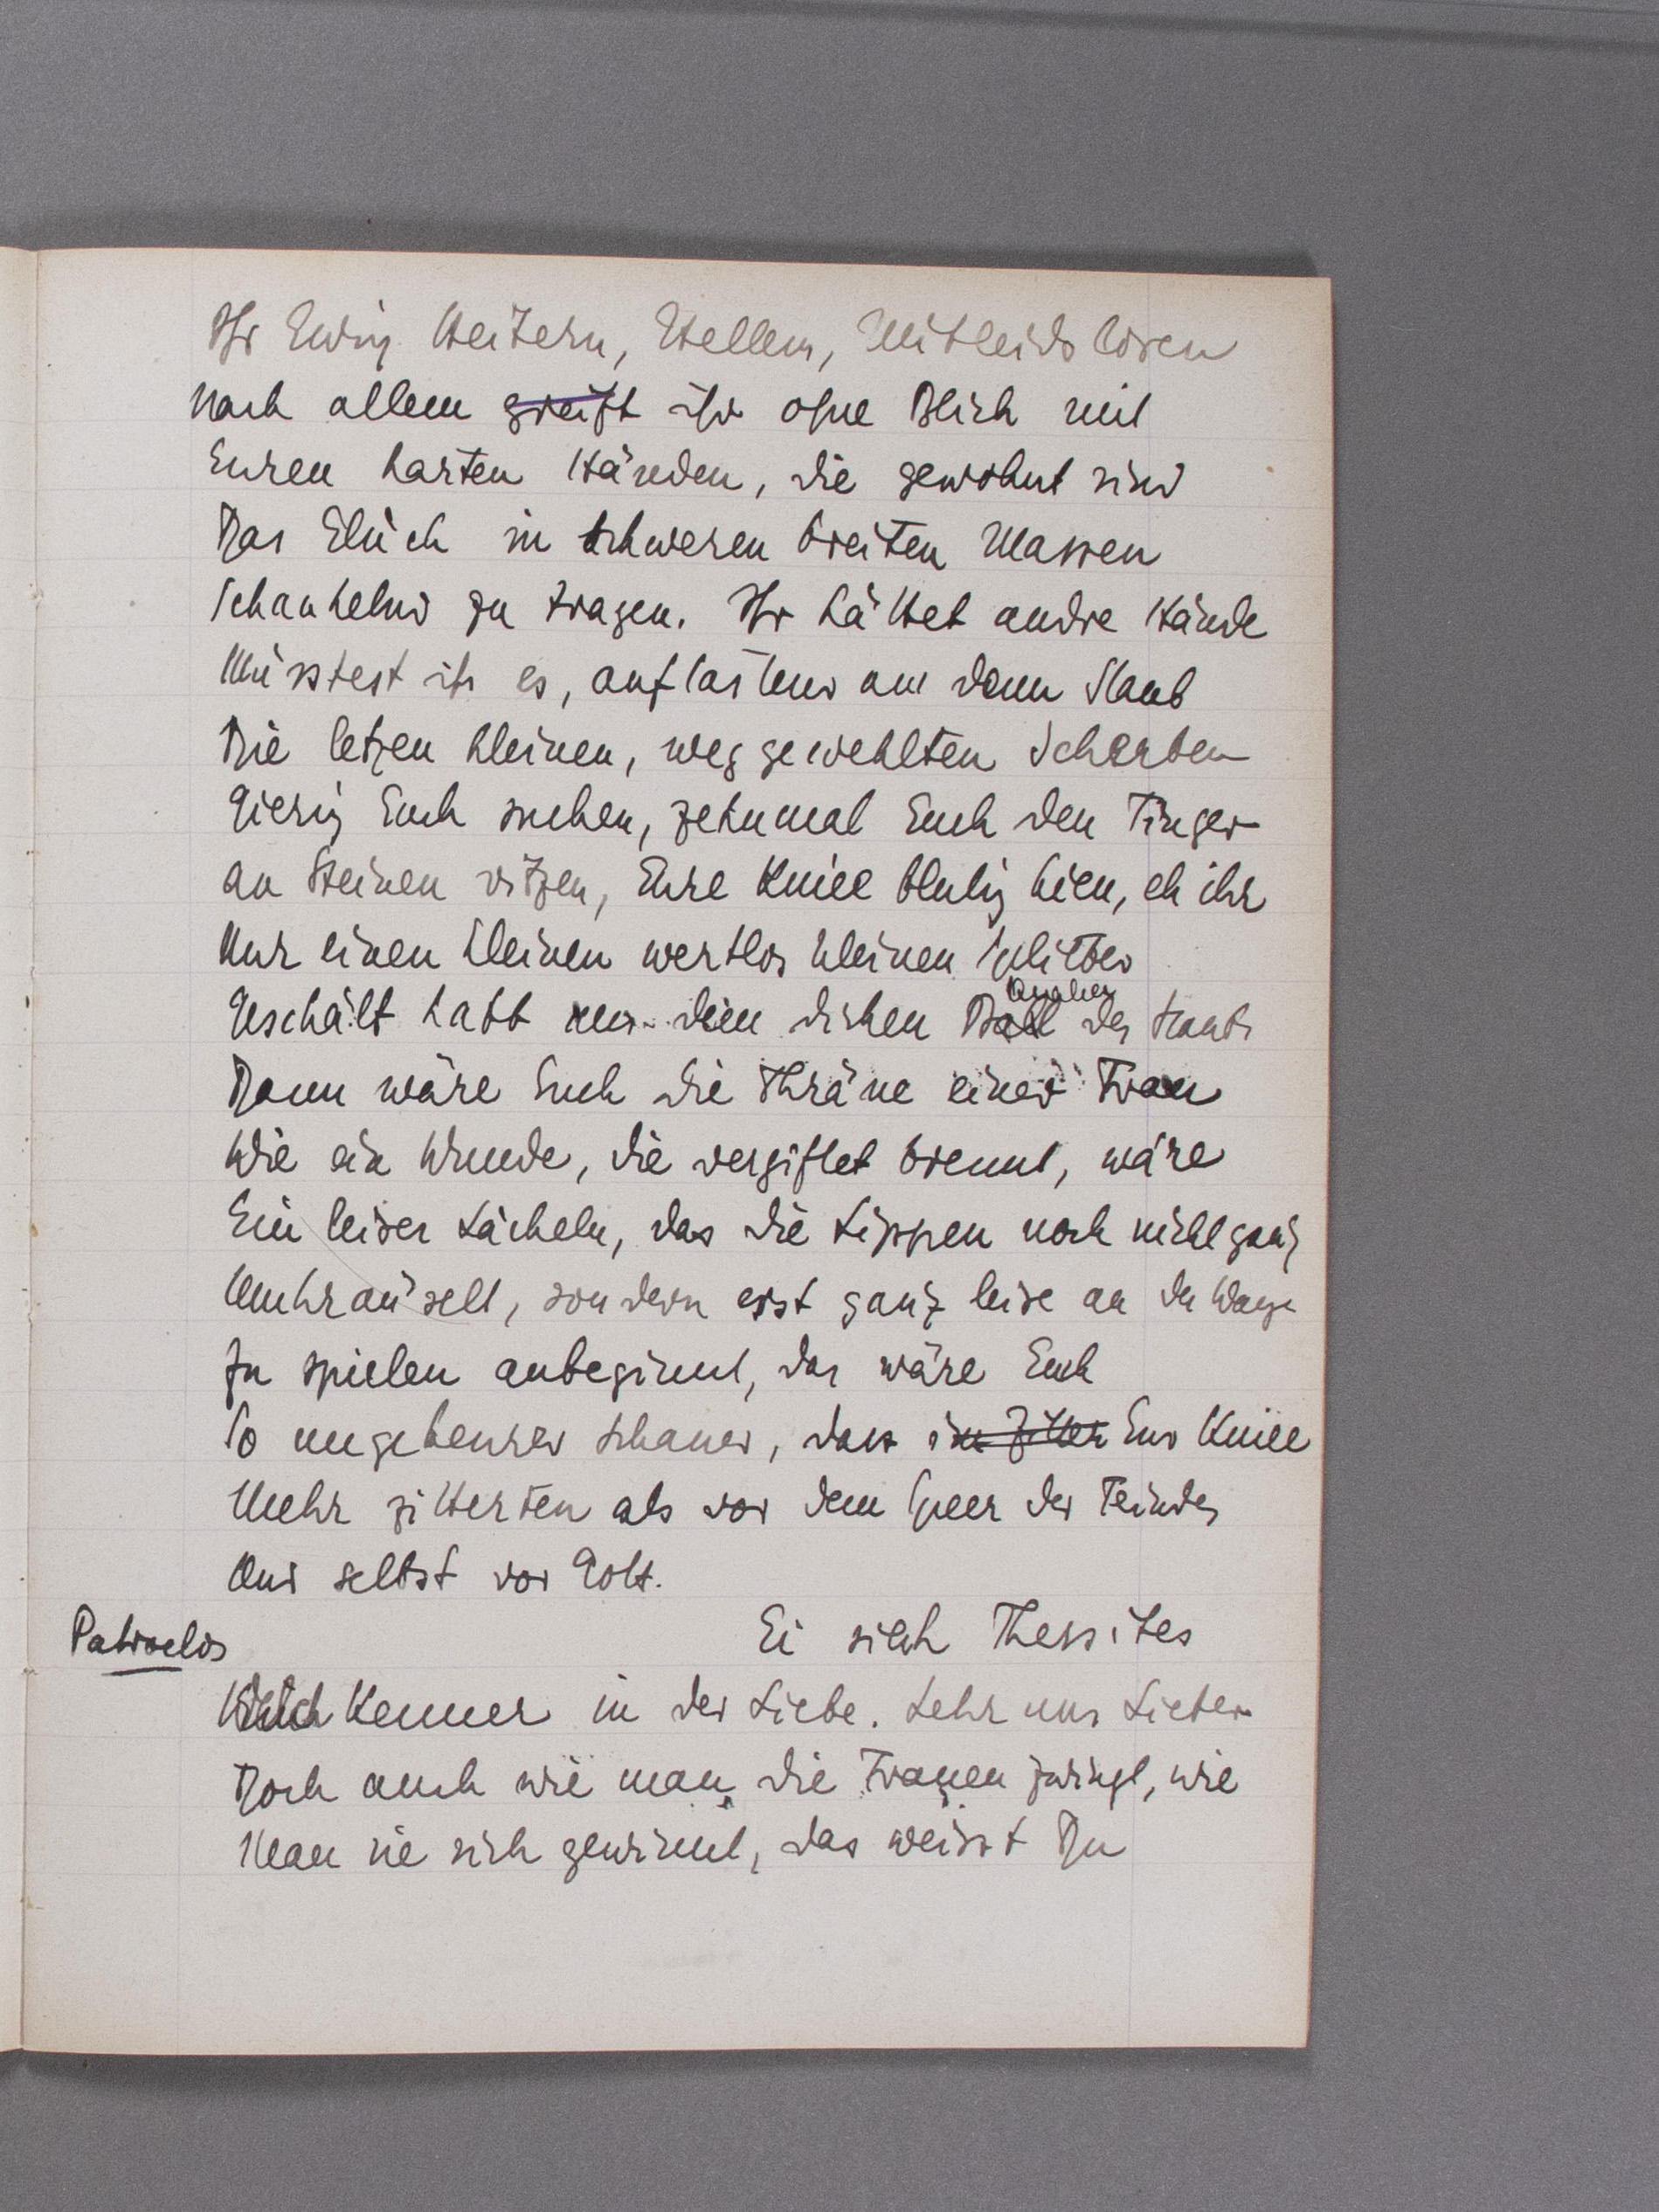 Ihr Ewig Heitern, Hellen, Mitleidslosen
nach allem greift ihr ohne Blick mit
Euren harten Händen, die gewohnt sind
Das Glück in schweren breiten Massen
Schaukelnd zu tragen. Ihr hättet andre Hände
Müsstest ihr es, auftastend aus dem Staub
Die letzen kleinen, weggewehten Scherben
Gierig Euch suchen, zehnmal Euch den Finger
an Steinen ritzen, Eure Kniee blutig knien, eh ihr
Nur einen kleinen wertlos kleinen Splitter
Geschält habt aus dem dicken Ball des Staubs
Dann wäre Euch die Thräne einer Frau
Wie ein Wunde, die vergiftet brennt, wäre
Ein leises Lächeln, das die Lippen noch nicht ganz
Umkräuselt, sondern erst ganz leise an der Wange
Zu spielen anbeginnt, das wäre Euch
So ungeheurer Schauer, dass ihr Zitter Eur Kniee
Mehr zitterten als vor dem Speer des Feindes
Und selbst vor Gott.
Patroclos Ei sieh Thersites
Welch Kenner in der Liebe. Lehr uns Lieber
Doch auch wie man die Frauen zwingt, wie
Man sie sich gewinnt, das weisst Du